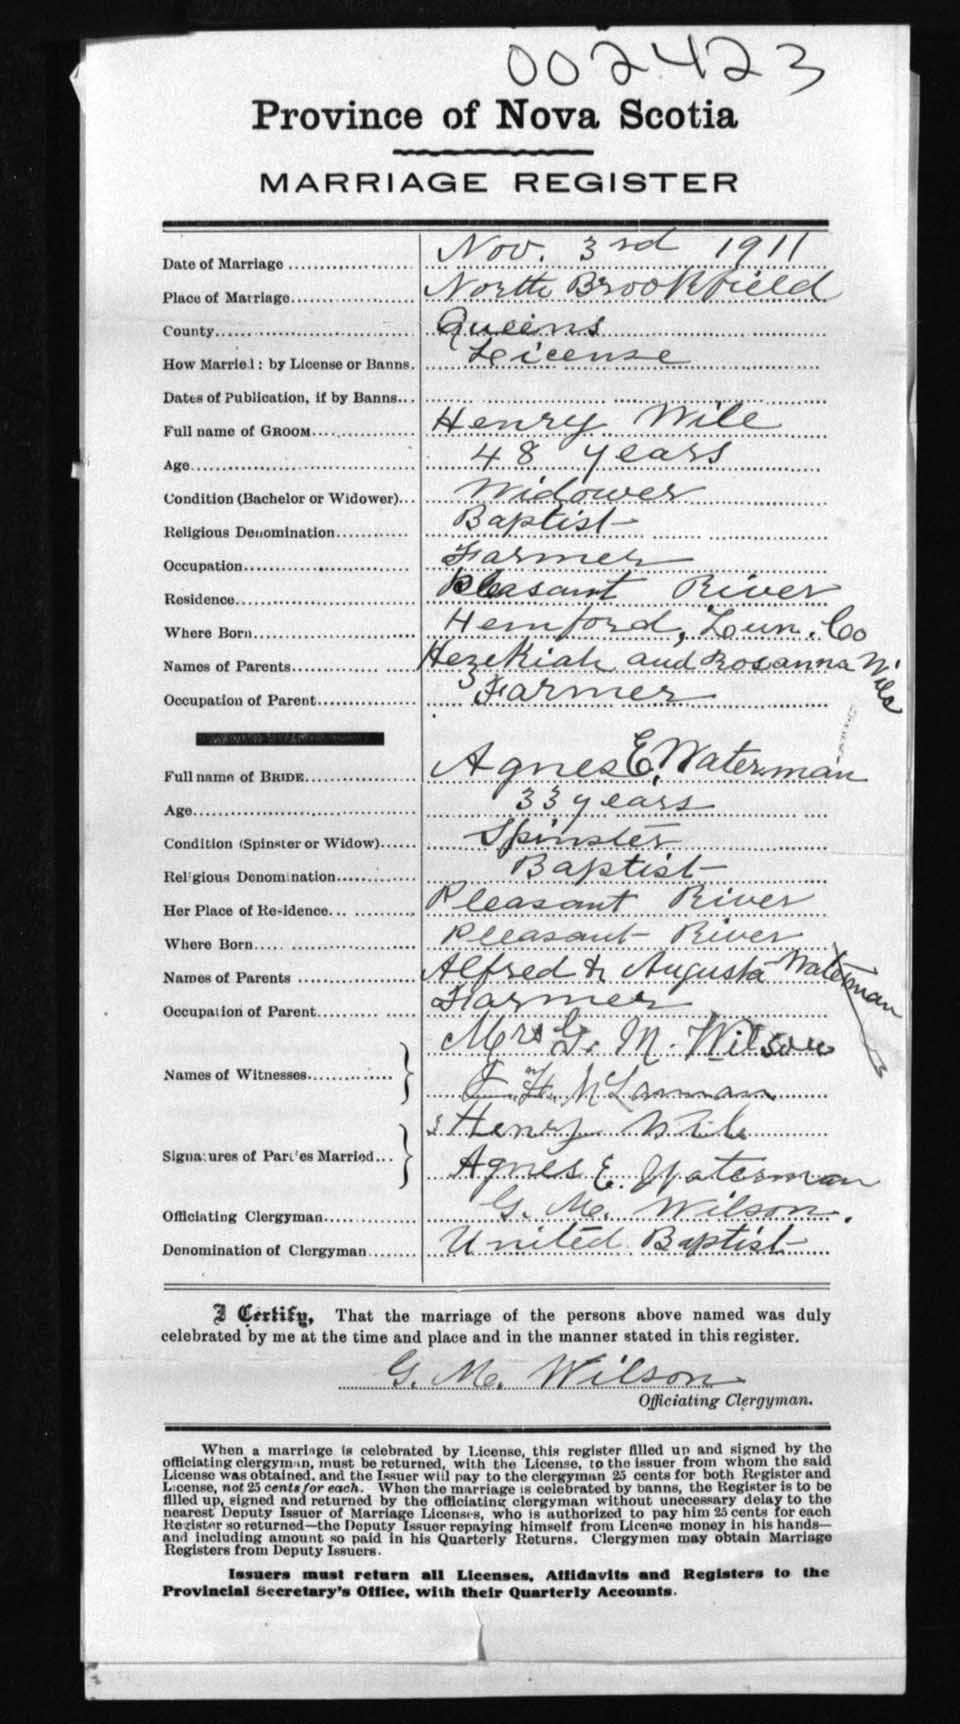 002423
Province of Nova Scotia
MARRIAGE REGISTER
Date of Marriage Nov. 3rd 1911
Place of Marriage North Brookfield
County Queens
How Married: by License or Banns. License
Dates of Publication, if by Banns
Full name of GROOM Henry Wile
Age 48 years
Condition (Bachelor or Widower) Widower
Religious Denomination Baptist
Occupation Farmer
Residence Pleasant River
Where Born Hemford, Lun. Co
Names of Parents Hezekiah and Rosanna Wile
Occupation of Parent Farmer
Full name of BRIDE Agnes E. Waterman
Age 33 years
Condition (Spinster or Widow) Spinster
Religious Denomination Baptist
Her Place of Residence Pleasant River
Where Born Pleasant River
Names of Parents Alfred & Augusta Waterman
Occupation of Parent Farmer
Names of Witnesses Mrs G. M. Wilson
Signatures of Parties Married Henry Wile
Agnes E. Waterman
Officiating Clergyman G. M. Wilson.
Denomination of Clergyman United Baptist
I Certify, That the marriage of the persons above named was duly
celebrated by me at the time and place and in the manner stated in this register.
G. M. Wilson
Officiating Clergyman.
When a marriage is celebrated by License, this register filled up and signed by the
officiating clergyman, must be returned, with the License, to the issuer from whom the said
License was obtained, and the Issuer will pay to the clergyman 25 cents for both Register and
License, not 25 cents for each. When the marriage is celebrated by banns, the Register is to be
filled up, signed and returned by the officiating clergyman without unnecessary delay to the
nearest Deputy Issuer of Marriage Licenses, who is authorized to pay him 25 cents for each
Register so returned—the Deputy Issuer repaying himself from License money in his hands—
and including amount so paid in his Quarterly Returns. Clergymen may obtain Marriage
Registers from Deputy Issuers.
Issuers must return all Licenses, Affidavits and Registers to the
Provincial Secretary's Office, with their Quarterly Accounts.